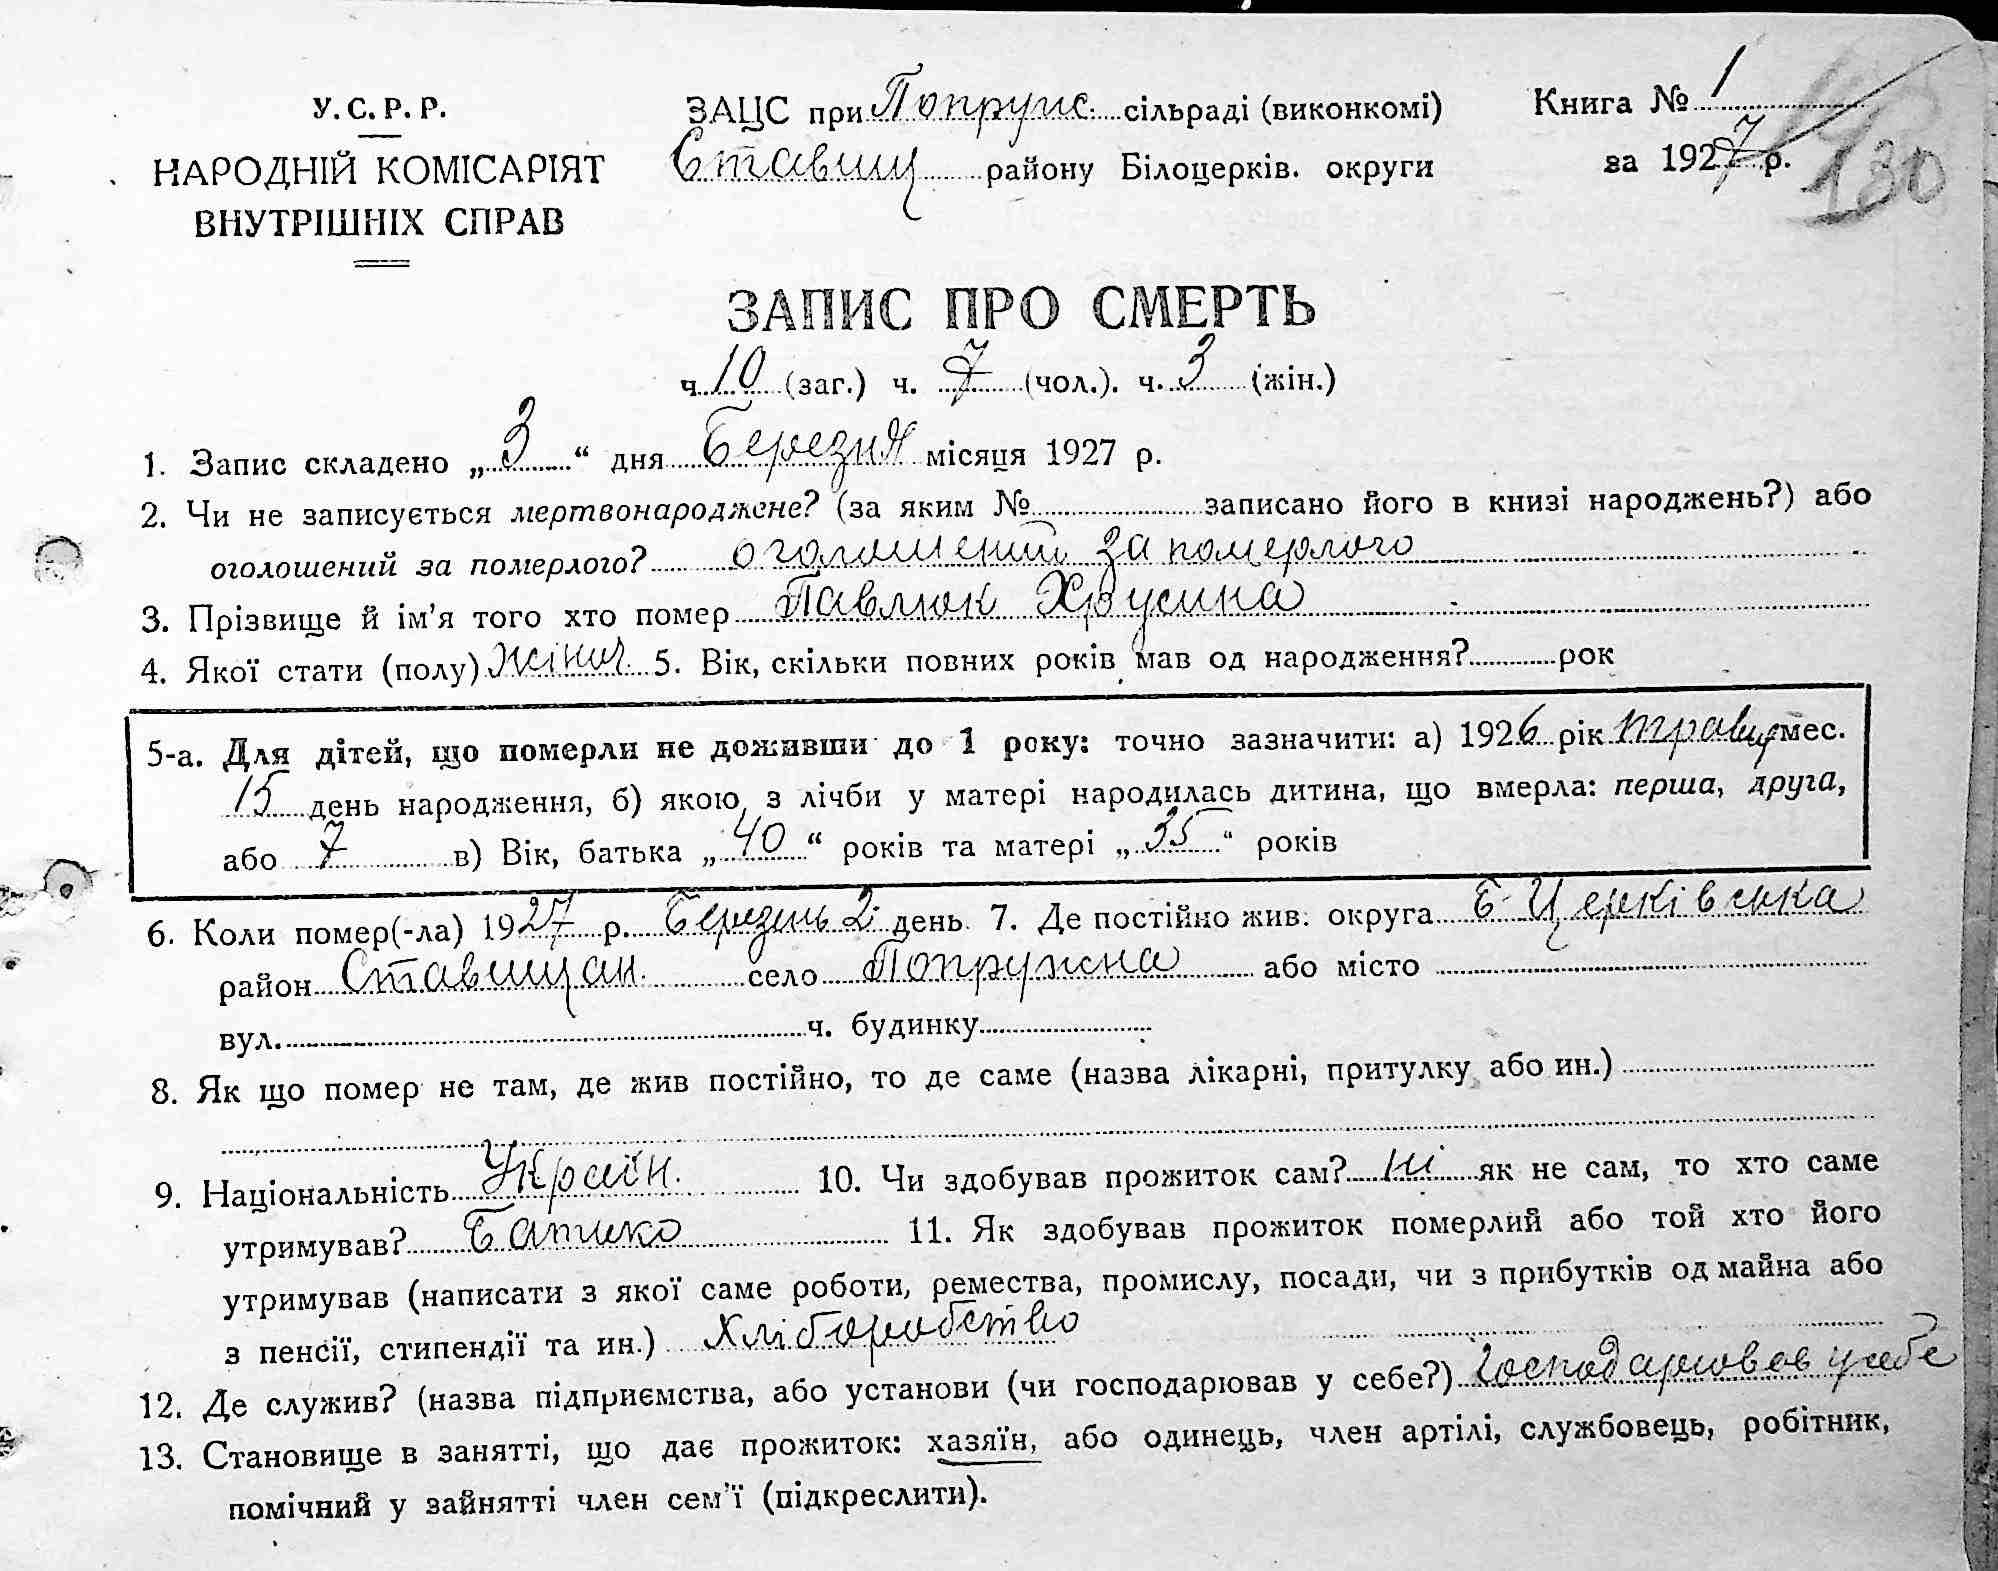 У. С. Р. Р.
НАРОДНІЙ КОМІСАРІЯТ
ВНУТРІШНІХ СПРАВ
ЗАЦС при Попружс. сільраді (виконкомі)
Ставищ района Білоцерків. округи
Книга № 1
за 1927 р.
130
ЗАПИС ПРО СМЕРТЬ
ч. 10 (заг.) ч. 7 (чол.). ч. 3 (жін.)
1. Запис складено „ 3 “ дня Березня місяця 1927 р.
2. Чи не записується мертвонароджене? (за яким № записано його в книзі народжень?) або
оголошений за померлого? оголошений за померлого
3. Прізвище й ім’я того хто помер Павлюк Хрусина
4. Якої стати (полу) жіноч. 5. Вік, скільки повних років мав од народження? рок
5-а. Для дітей, що померли не доживши до 1 року: точно зазначити: а) 1926 рік травня мес.
15 день народження, б) якою, з лічби у матері народилась дитина, що вмерла: перша, друга,
або 7 в) Вік, батька „ 40 “ років та матері „ 35 “ років
6. Коли помер(-ла) 1927 р. Березень 2 день 7. Де постійно жив. округа Б-Церківська
район Ставищан. село Попружна або місто
вул. ч. будинку
8. Як що помер не там, де жив постійно, то де саме (назва лікарні, притулку або ин.)
9. Національність Україн. 10. Чи здобував прожиток сам? ні як не сам, то хто саме
утримував? Батько 11. Як здобував прожиток померлий або той хто його
утримував (написати з якої саме роботи, ремества, промислу, посади, чи з прибутків од майна або
з пенсії, стипендії та ин.) хліборобство
12. Де служив? (назва підприємства, або установи (чи господарював у себе?) Господарював у себе
13. Становище в занятті, що дає прожиток: хазяїн, або одинець, член артілі, службовець, робітник,
помічний у зайнятті член сем’ї (підкреслити).